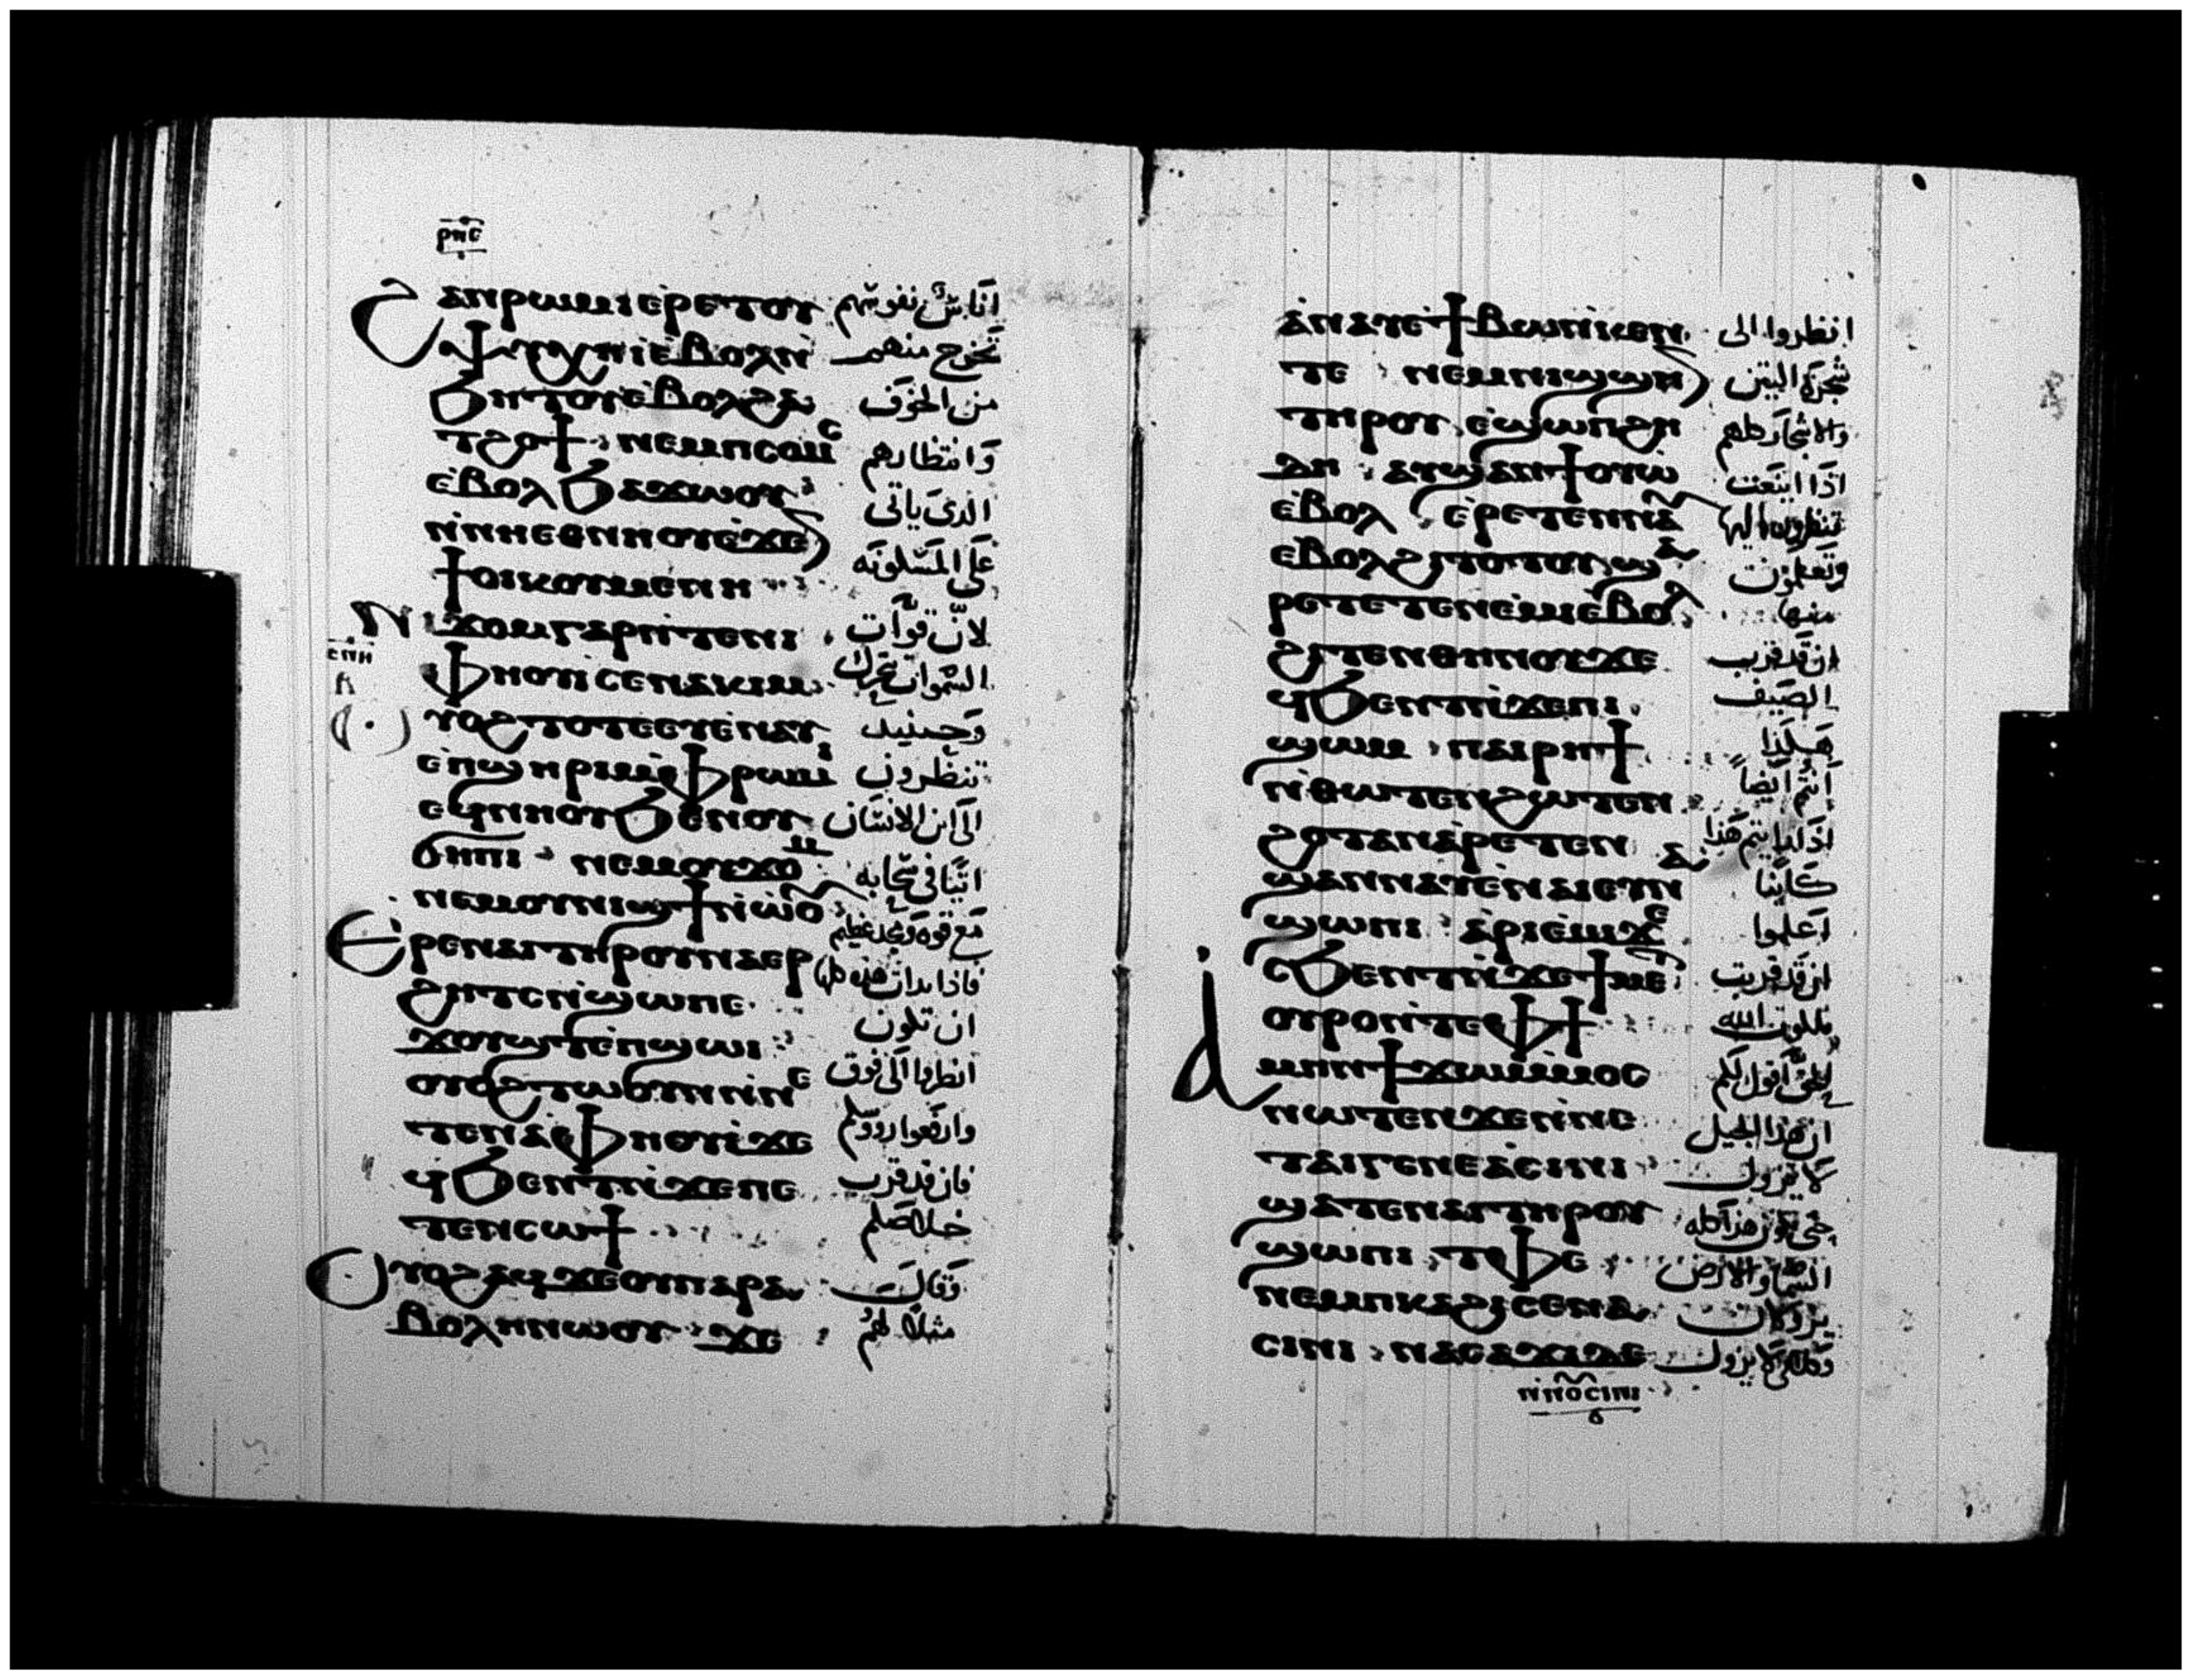 ⲣⲛⲉ
ϩⲁⲛⲣⲱⲙⲓ ⲉⲣⲉ ⲧⲟⲩ اناس نفوسهم
ⲯⲩⲭⲏ ⲓ ⲉⲃⲟⲗ ⲛ̀ تخرج منهم
ϧⲏⲧⲟⲩ ⲉⲃⲟⲗ ϩⲁ من الخوف
ⲧϩⲟϯ ⲛⲉⲙ ⲡⲥⲟⲙⲥ وانتظارهم
ⲉⲃⲟⲗ ϧⲁϫⲱⲟⲩ الذى ياتى
ⲛ̀ⲛⲏ ⲉⲑⲛⲏⲟⲩ ⲉ̀ϫⲉⲛ على المسكونه
ϯⲟⲓⲕⲟⲩⲙⲉⲛⲏ
ⲛⲓϫⲟⲙ ⲅⲁⲣ ⲛ̀ⲧⲉ ⲛⲓ لان قوات
ⲥⲡⲏ
ⲫⲏⲟⲩⲓ ⲥⲉⲛⲁⲕⲓⲙ السموات تتحرك
ⲟⲩⲟϩ ⲧⲟⲧⲉ ⲉⲩⲉ̀ⲛⲁⲩ وحينيد
ⲉ̀ⲡϣⲏⲣⲓ ⲙ̀ⲫⲣⲱⲙⲓ تنظرون
ⲉϥⲛⲏⲟⲩ ϧⲉⲛ ⲟⲩ الى ابن الانسان
ϭⲏⲡⲓ ⲛⲉⲙ ⲟⲩϫⲟⲙ اتيا فى سحابه
ⲛⲉⲙ ⲟⲩⲛⲓϣϯ ⲛ̀ⲱ̀ⲟⲩ مع قوه ومجد عظيم
ⲉⲣⲉ ⲛⲁⲓ ⲧⲏⲣⲟⲩ ⲛⲁⲉⲣ فاذا بدات هذه كلها
ϩⲏⲧⲥ ⲛ̀ϣⲱⲡⲉ ان تكون
ϫⲟⲩϣⲧ ⲉ̀ⲡϣⲱⲓ انظروا الى فوق
ⲟⲩⲟϩ ϭⲓⲥⲓ ⲛ̀ⲛⲉ
ⲧⲉⲛⲁⲫⲏⲟⲩⲓ ϫⲉ وارفعوا رووسكم
ϥϧⲉⲛⲧ ⲛ̀ϫⲉ ⲡⲉ فان قد قرب
ⲧⲉⲛⲥⲱϯ خلاصكم
ⲟⲩⲟϩ ⲁϥϫⲉ ⲟⲩⲡⲁⲣⲁ وقال
ⲃⲟⲗⲏ ⲛⲱⲟⲩ ϫⲉ مثلا لهم
ⲁⲛⲁⲩ ⲉ̀ϯⲃⲱ ⲛ̀ⲕⲉⲛ انظروا الى
ⲧⲉ ⲛⲉⲙ ⲛⲓϣϣⲏⲛ شجرة التين
ⲧⲏⲣⲟⲩ ⲉϣⲱⲡ ϩⲏ والاشجار كلهم
ⲇⲏ ⲁⲩϣⲁⲛϯⲟⲩⲱ اذا اينعت
ⲉⲃⲟⲗ ⲉⲣⲉⲧⲉⲛⲛⲁⲩ تنظرون اليها
ⲉⲃⲟⲗϩⲓⲧⲟⲧⲟⲩ ϣⲁ وتعلمون
ⲣⲉⲧⲉⲧⲉⲛⲉⲙⲓ ⲉⲃⲟⲗ منها
ϩⲓⲧⲉⲛ ⲑⲏⲛⲟⲩ ϫⲉ ان قد قرب
ϥϧⲉⲛⲧ ⲛ̀ϫⲉ ⲡⲓ الصيف
ϣⲱⲙ ⲡⲁⲓⲣⲏϯ هكذا
ⲛ̀ⲑⲱⲧⲉⲛ ϩⲱⲧⲉⲛ انتم ايضا
ϩⲟⲧⲁⲛ ⲁ̀ⲣⲉⲧⲉⲛ اذا يتم هذا
ϣⲁⲛⲛⲁⲩ ⲉ̀ⲛⲁⲓ ⲉⲩⲛⲁ كاينا
ϣⲱⲡⲓ ⲁ̀ⲣⲓⲉ̀ⲙⲓ ϫⲉ اعلموا
ⲥϧⲉⲛⲧ ⲛ̀ϫⲉ ϯⲙⲉⲧ ان قد قربت
ⲟⲩⲣⲟ ⲛ̀ⲧⲉ ⲫϯ ملكوت الله
ⲁ̀ⲙⲏⲛ ϯϫⲱ ⲙ̀ⲙⲟⲥ الحق اقول لكم
ⲛⲱⲧⲉⲛ ϫⲉ ⲛ̀ⲛⲉ ان هذا الجيل
ⲧⲁⲓⲅⲉⲛⲉⲁ ⲥⲓⲛⲓ لا يزول
ϣⲁⲧⲉ ⲛⲁⲓ ⲧⲏⲣⲟⲩ حتى يكون هذا كله
ϣⲱⲡⲓ ⲧⲫⲉ السما والارض
ⲛⲉⲙ ⲡⲕⲁϩⲓ ⲥⲉⲛⲁ يزولان
ⲥⲓⲛⲓ ⲛⲁⲥⲁϫⲓ ⲇⲉ وكلامى لا يزول
ⲛ̀ⲛⲟⲩⲥⲓⲛⲓ